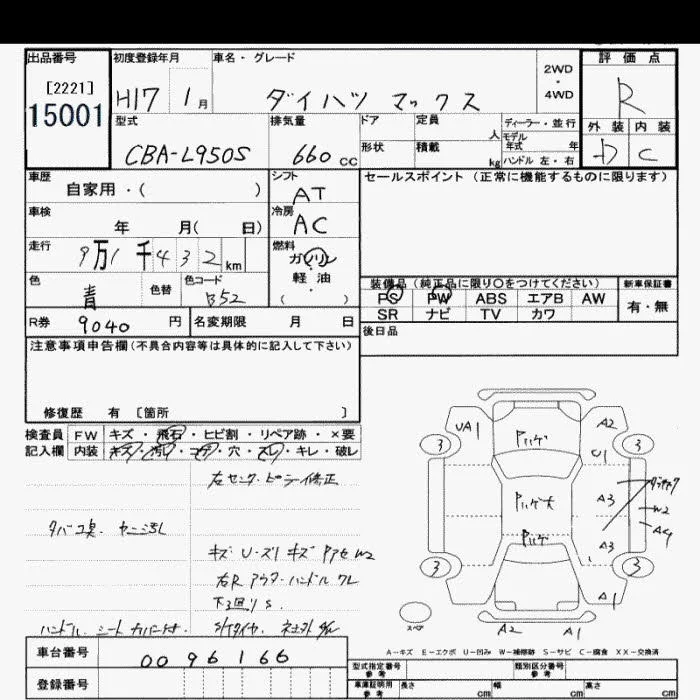 出品番号 初度登録年月 車名・グレード 2WD・4WD 評価点
[2221]
15001
H17 1月 ダイハツ マックス R
型式 排気量 ドア 定員 人 ディーラー・並行
外装 内装
モデル年式 年
CBA-L950S 660 cc 形状 積載 kg ハンドル 左・右 C
車歴 シフト セールスポイント (正常に機能するものに限ります)
自家用・( ) AT
車検 冷房
年 月( 日) AC
走行 燃料
9万1千432km ガソリン・軽油
( )
色 色替 色コード
青 B52
装備品 (純正品に限り○をつけてください) 新車保証書
PS PW ABS エアB AW 有・無
SR ナビ TV カワ
R券 9040円 名変期限 月 日
後日品
注意事項申告欄(不具合内容等は具体的に記入して下さい)
修復歴 有 〔箇所 〕
検査員記入欄 FW キズ・飛石・ヒビ割・リペア跡・×要
内装 キズ・汚レ・コゲ・穴・スレ・キレ・破レ
左センターピラー修正
タバコ臭・ヤニ汚レ
キズ U・ズリキズ W2
右R アウターハンドル ワレ
下廻りS
ハンドル・シートカバー付
UA1 A2
U1
3 3
A3
W2
A4
A3
3 3
A1
A2 A1
スペア
A-キズ E-エクボ U-凹み W-補修跡 S-サビ C-腐食 XX-交換済
車台番号 0096166
登録番号
型式指定番号 参考 類別区分番号 参考
車庫証明用 参考 長さ cm 幅 cm 高さ cm